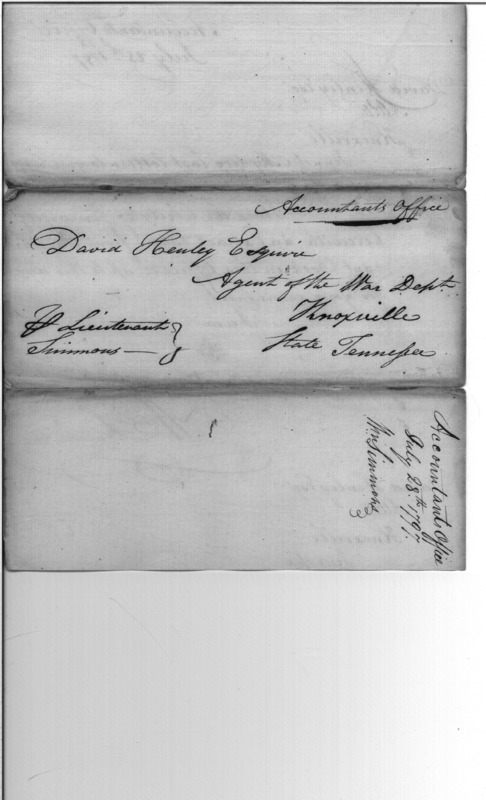 Accountants Office
David Henley Esquire
Agent of the War Dept.
Knoxville
State Tennessee
⅌ Lieutenant
Simmons
Accountants Office
July 28th 1797.
Wm. Simmons